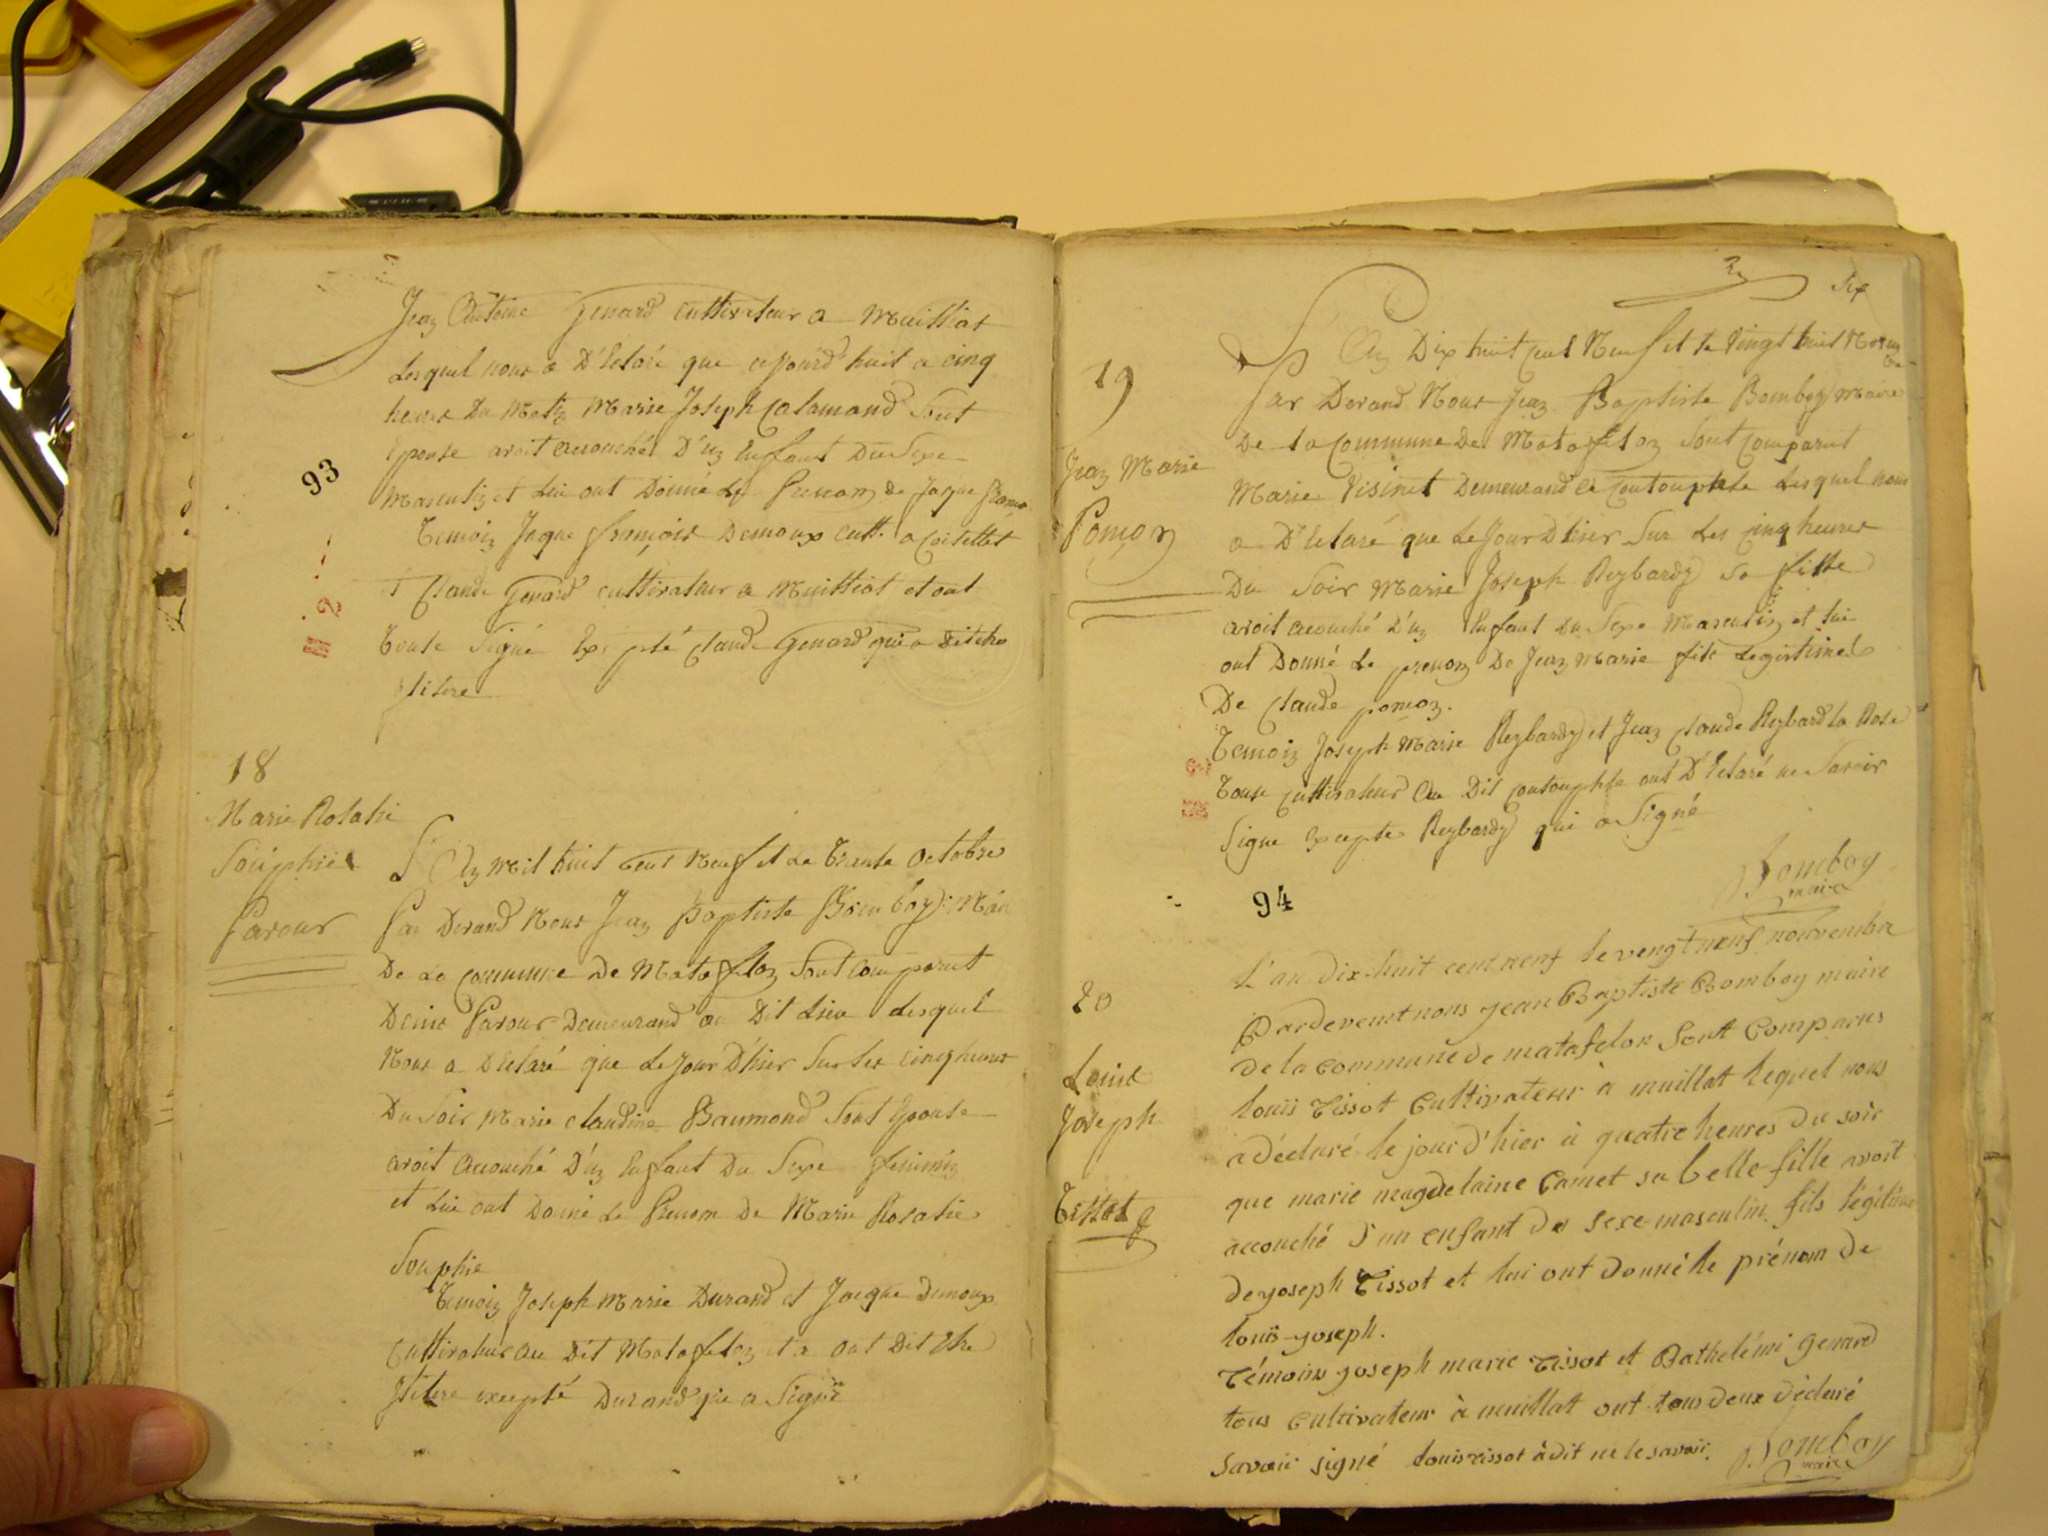 Jean Antoine Genard Cultivateur a Muilliat
Lesquel nous a D'Eclaré que ajourd'huit a cinq
heures Du Matin Marie Joseph Calamand Sont
Epouse avoit acouchée D'un Enfant Du Sexe
Masculin et Lui ont Donné Le Prenom de Jaque
93
Temoin Jaque françois Demoux cult. a Coisellet
et Claude Genard cultivateur a Muilliat et ont
Touse Signé Claude Genard qui a Dit
18
Marie Rosalie
Souphie
Pavour
L'An Mil huit Cent Neuf et Le Trente Octobre
Par Devand Nous Jean Baptiste Bomboy Mair
De La Commune De Matafelon Sont Comparut
Denis Pavour Demeurand au Dit Lieu Lesquel
Nous a D'Eclaré que Le Jour D'hier Sur Les cinq heures
Du Soir Marie Claudine Baumond Sont Epouse
avoit Acouché D'un Enfant Du Sexe feminin
et Lui ont Donné Le Prenom De Marie Rosalie
Souphie
Temoin Joseph Marie Durand et Jacque Demoux
Cultivateur Au Dit Matafelon ont Dit
excepté Durand qui a Signé
Six
19
Jean Marie
Pomon
L'An Dix huit cent Neuf et le Vingt huit
Par Devand Nous Jean Baptiste Bomboy Maire
De La Commune De Matafelon Sont Comparut
Marie Visinet Demeurand a Coutouphle Lesquel nous
a D'Eclaré que Le Jour D'hier Sur Les Cinq heures
Du Soir Marie Joseph Reybardy Sa fille
avoit acouché D'un Enfant Du Sexe Masculin et Lui
ont Donné Le prenom De Jean Marie fils Legistime
De Claude pomon.
Temoin Joseph Marie Reybardy et Jean Claude Reybard La Rose
Touse Cultivateur Au Dit Coutouphle ont D'Eclaré ne Savoir
Signe Excepte Reybardy qui a Signé
Bomboy
maire
94
20
Louis
Joseph
Tissot
L'an dix-huit cent neuf le vengt neuf nouvembre
Pardevent nous Jean Baptiste Bomboy maire
de la Commune de matafelon Sont Comparus
louis Tissot Cultivateur à muillat lequel nous
a déclaré le jour d'hier à quatre heures du soir
que marie magdelaine Camet sa belle-fille avoit
accouché d'un enfant du sexe masculin fils légitime
de joseph Tissot et lui ont donné le prénom de
louis-joseph.
Témoins joseph marie Tissot et Bathelémi Genard
tous cultivateur à muillat ont tous deux déclaré
savoir signé louis tissot à dit ne le savoir.
Bomboy
maire